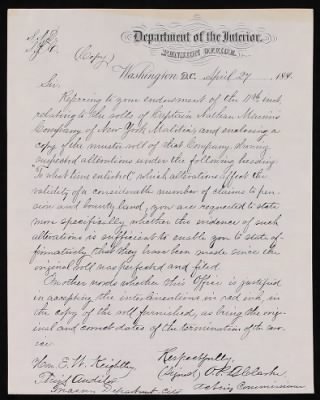 Department of the Interior,
PENSION OFFICE,
(Copy)
Washington D.C. April 27, 188
Sir,
Referring to your endorsement of the 11th inst.
relating to the rolls of Captain Nathan
Company of New York Militia, and enclosing a
copy of the muster roll of that Company, having
suspected alterations under the following heading
"To what time enlisted" which alterations affect the
validity of a considerable number of claims to pen-
sion and bounty land, you are requested to state
more specifically whether the evidence of such
alterations is sufficient to enable you to state af-
firmatively that they have been made since the
original roll was perfected and filed.
In other words whether this Office is justified
in accepting the interlineations in red ink, in
the copy of the roll furnished, as being the orig-
inal and correct dates of the termination of the ser-
vice.
Respectfully,
Hon. E. W. Keightley (Signed) O.P.G. Clarke
Third Auditor Acting Commissioner
Treasury Department City